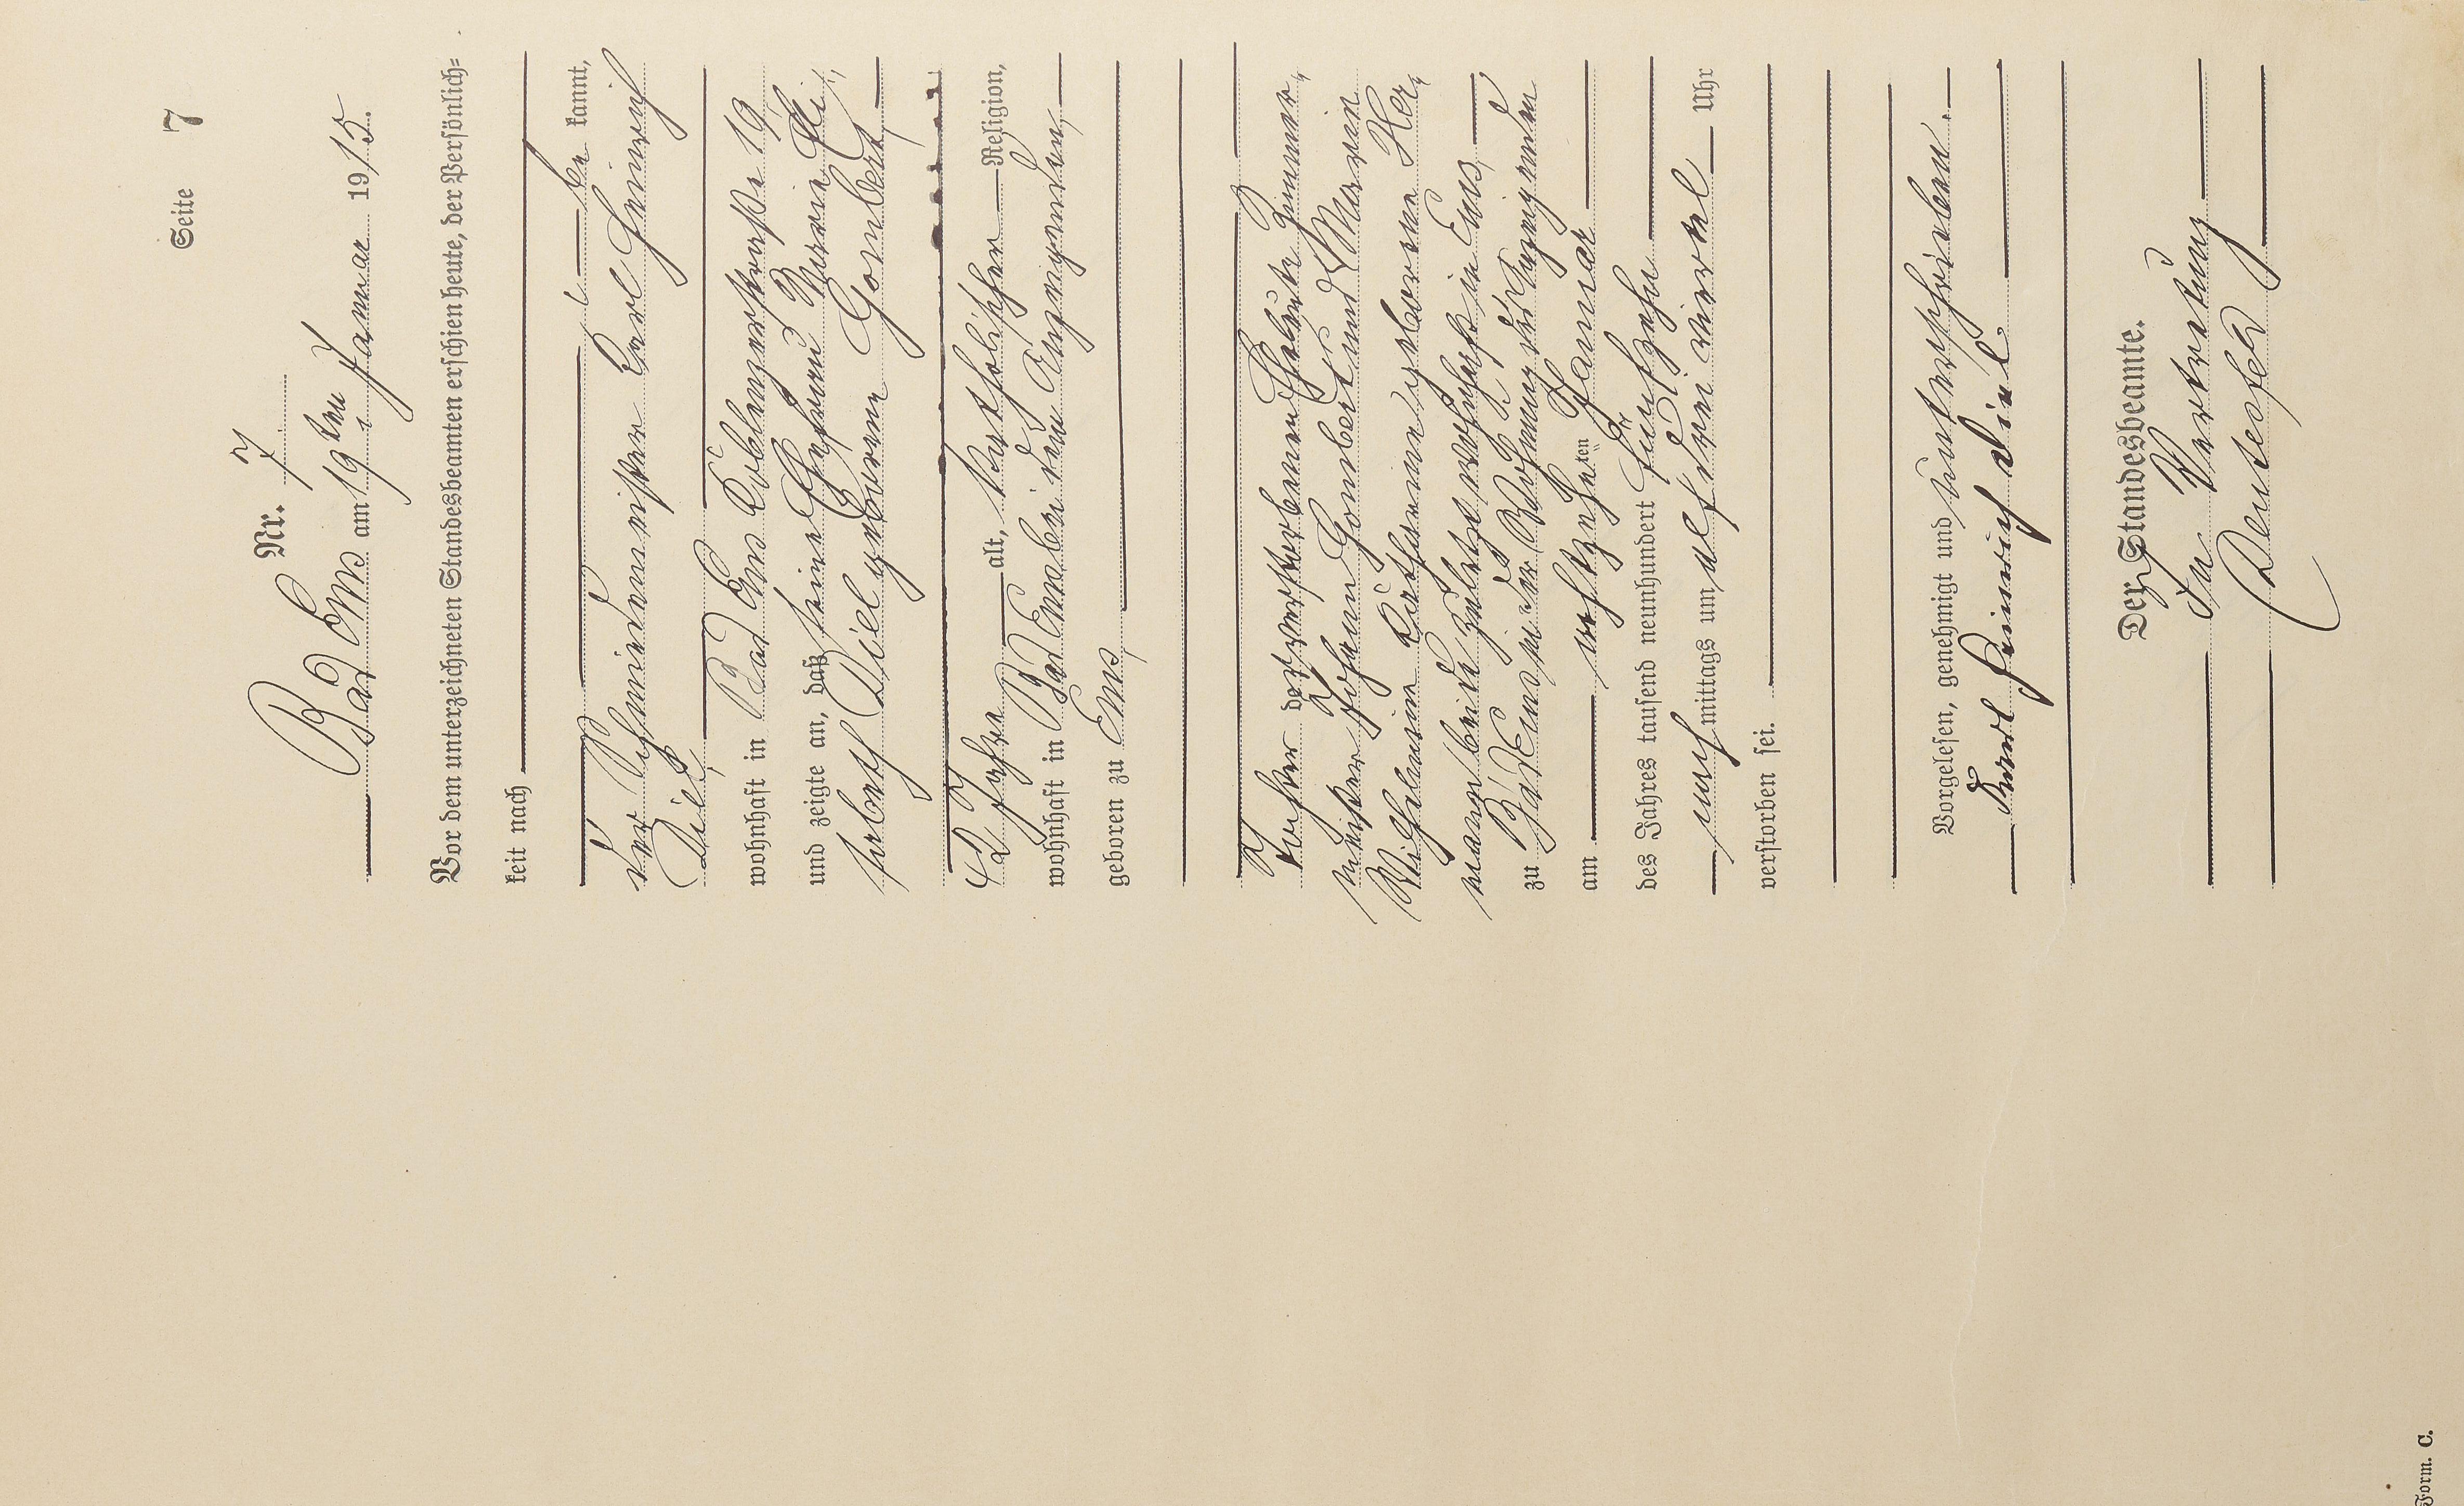 Seite 7
Nr. 7
Bad Ems am 19ten Januar 1915.
Vor dem unterzeichneten Standesbeamten erschien heute, der Persönlich=
keit nach
be kannt,
der Schmiedemeister Carl Heinrich
Diel,
wohnhaft in Bad Ems Coblenzerstraße 19
und zeigte an, daß seine Ehefrau Maria Eli¬
sabeth Diel geborene Gombert,
42 Jahre alt, katholischer Religion,
wohnhaft in Bad Ems bei dem Anzeigenden,
geboren zu Ems,
Tochter der verstorbenen Eheleute Zimmer¬
meister Johann Gombert und Maria
Wilhelmine Katharine geborene Her¬
mann beide zuletzt wohnhaft in Ems,
zu Bad Ems in der Wohnung des Anzeigenden
am achtzehnten Januar
des Jahres tausend neunhundert fünfzehn
nach mittags um drei viertel Uhr
verstorben sei.
Vorgelesen, genehmigt und unterschrieben.
Karl Heinrich Diel
Der Standesbeamte.
In Vertretung